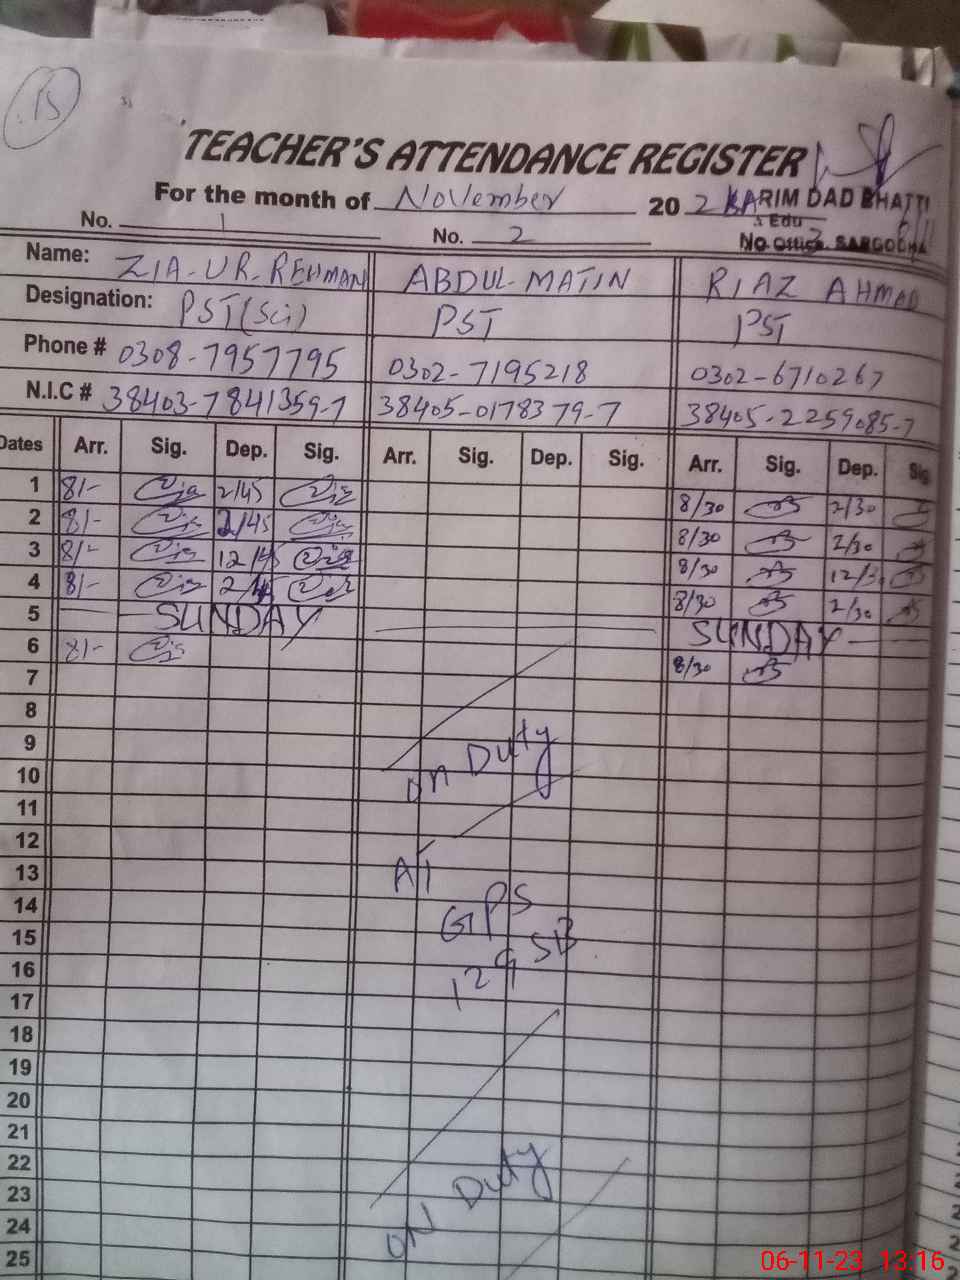 15
TEACHER'S ATTENDANCE REGISTER
For the month of November 202
KARIM DAD BHATTI
Edu
SARGODHA
No. 1 No. 2 No. 3
Name: ZIA-UR-REHMAN ABDUL-MATIN RIAZ AHMAD
Designation: PST(Sci) PST PST
Phone # 0308-7957795 0302-7195218 0302-6710267
N.I.C # 38403-7841359-7 38405-0178379-7 38405-2259085-7
Dates Arr. Sig. Dep. Sig. Arr. Sig. Dep. Sig. Arr. Sig. Dep. Sig
1 8/- 2/45 8/30 2/30
2 8/- 2/45 8/30 2/30
3 8/- 12/45 8/30 12/30
4 8/- 2/45 8/30 2/30
5 SUNDAY SUNDAY
6 8/- 8/30
7
8
9
10 on Duty
11
12
13 AT
14 GPS
15
16 129 SB
17
18
19
20
21
22
23 ON Duty
24
25
06-11-23 13:16